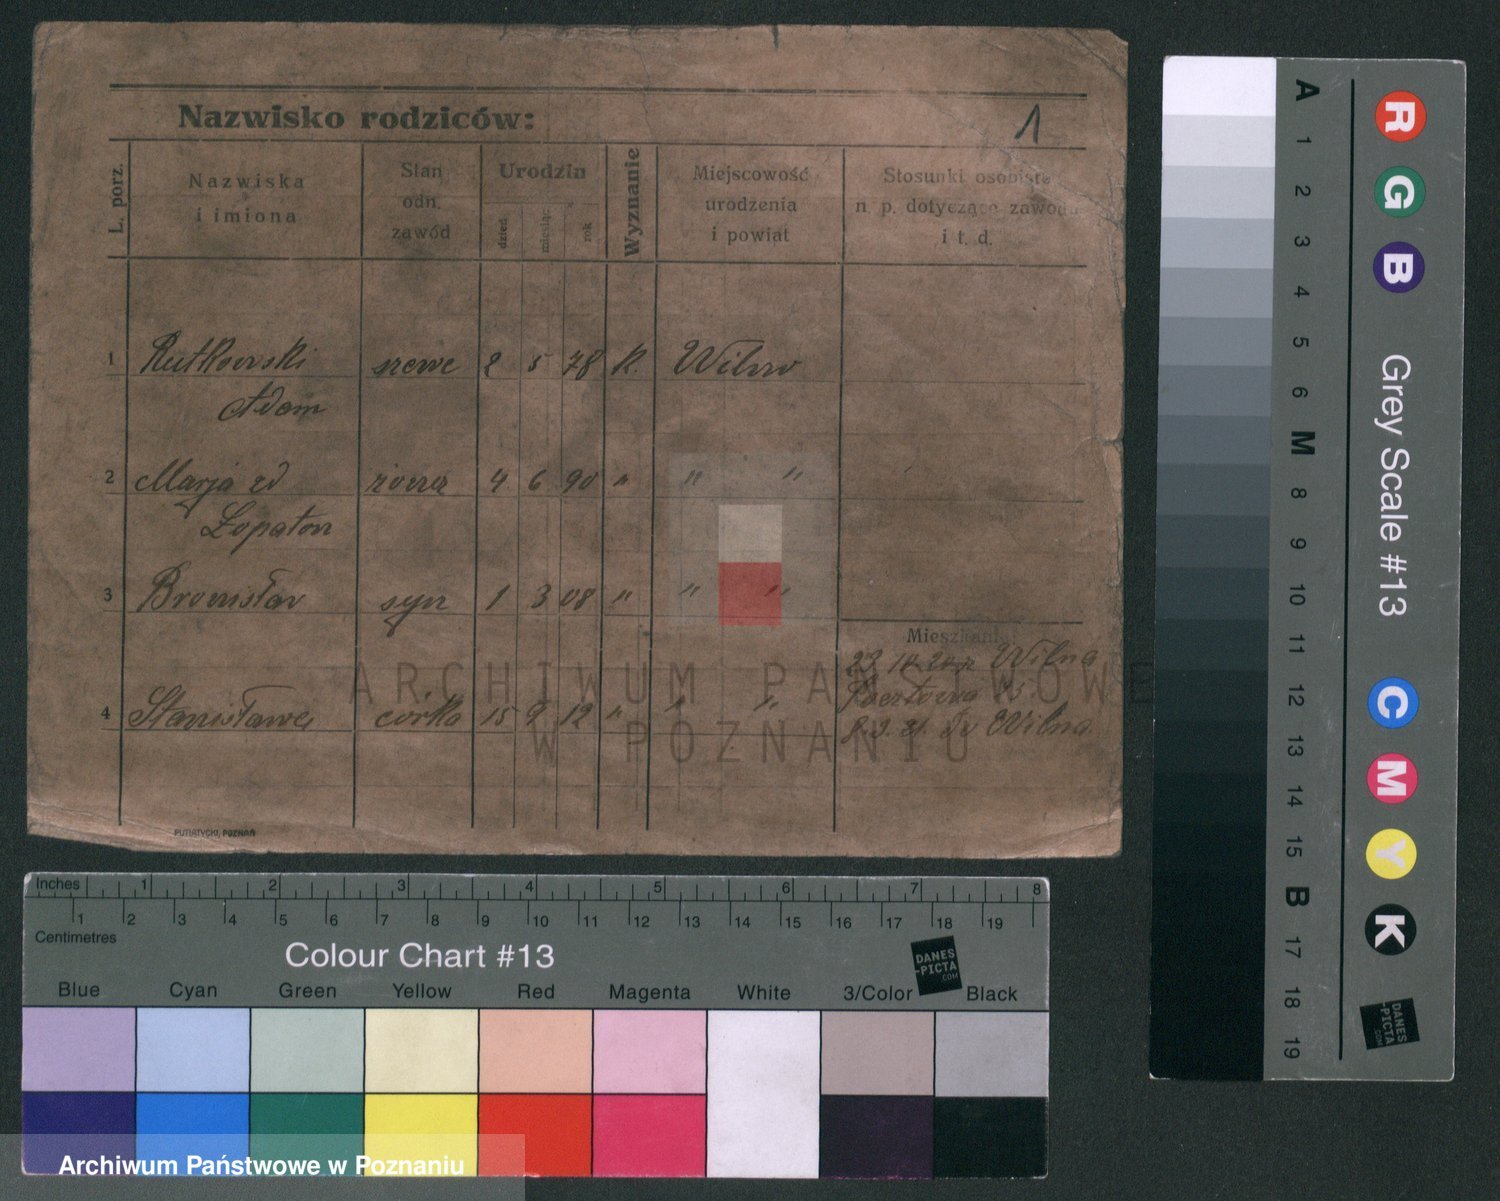 Nazwisko rodziców:
1
L. porz.
Nazwiska
i imiona
Stan
odn.
zawód
Urodzin
dzień
miesiąc
rok
Wyznanie
Miejscowość
urodzenia
i powiat
Stosunki osobiste
n. p. dotyczące zawodu
i t. d.
1 Rutkowski szewc 2 5 78 k. Wilno
Adam
2 Marja zd żona 4 6 90 " " "
Łopaton
3 Bronisław syn 1 3 08 " " "
Mieszkanie:
23. Wilna
4 Stanisława córka 15 9 12 " " "
Wilna
PUTIATYCKI, POZNAŃ
ARCHIWUM PAŃSTWOWE
W POZNANIU
Inches 1 2 3 4 5 6 7 8
1 2 3 4 5 6 7 8 9 10 11 12 13 14 15 16 17 18 19
Centimetres
Colour Chart #13
DANES
-PICTA
.COM
Blue Cyan Green Yellow Red Magenta White 3/Color Black
Archiwum Państwowe w Poznaniu
A 1 2 3 4 5 6 M 8 9 10 11 12 13 14 15 B 17 18 19
R G B
Grey Scale #13
C M Y K
DANES
-PICTA
.COM